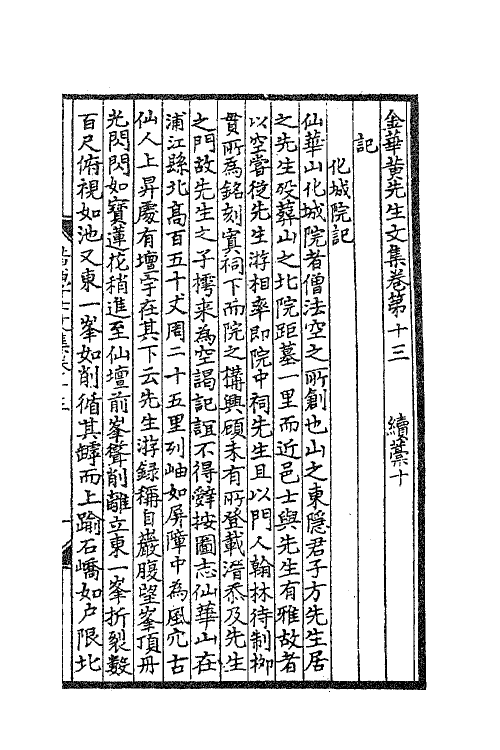 金華黄先生文集卷第十三　續藁十
記
化城院記
仙華山化城院者僧法空之所創也山之東隱君子方先生居
之先生歿葬山之北院距墓一里而近邑士與先生有雅故者
以空嘗從先生游相率即院中祠先生且以門人翰林待制柳
貫所為銘刻寘祠下而院之構興顧未有所登載潛忝及先生
之門故先生之子樗来為空謁記誼不得辤按圖志仙華山在
浦江縣北高百五十丈周二十五里列岫如屏障中為風穴古
仙人上昇處有壇宇在其下云先生游録稱自巖腹望峯頂丹
光閃閃如寶蓮花稍進至仙壇前峯聳削離立東一峯折裂數
百尺俯視如池又東一峯如削循其罅而上踰石嶠如户限北